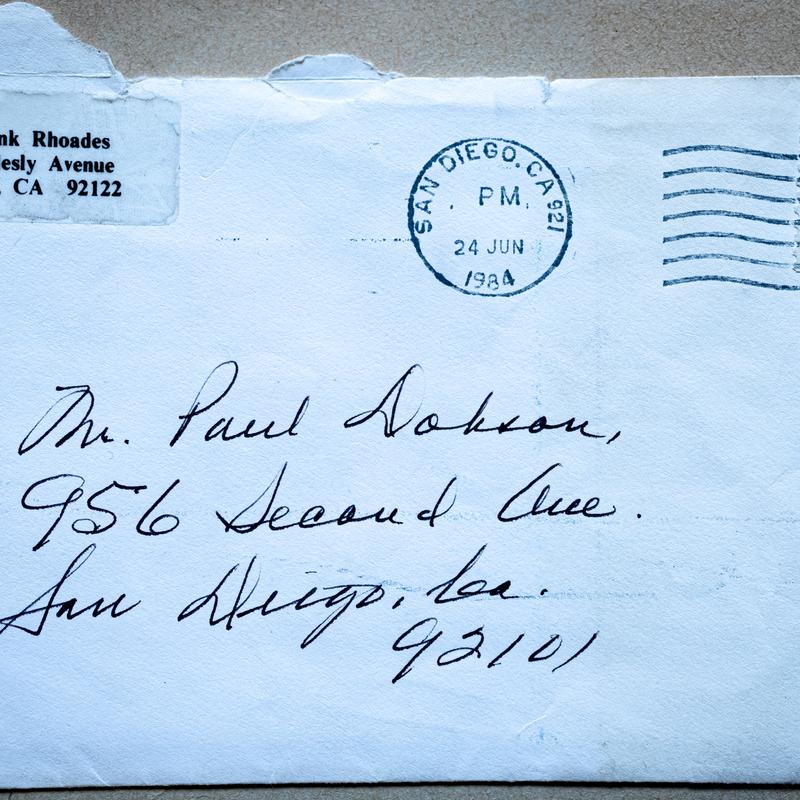 nk Rhoades
lesly Avenue
, CA 92122
SAN DIEGO, CA 921
PM
24 JUN
1984
Mr. Paul Dobson,
956 Second Ave.
San Diego, Ca.
92101